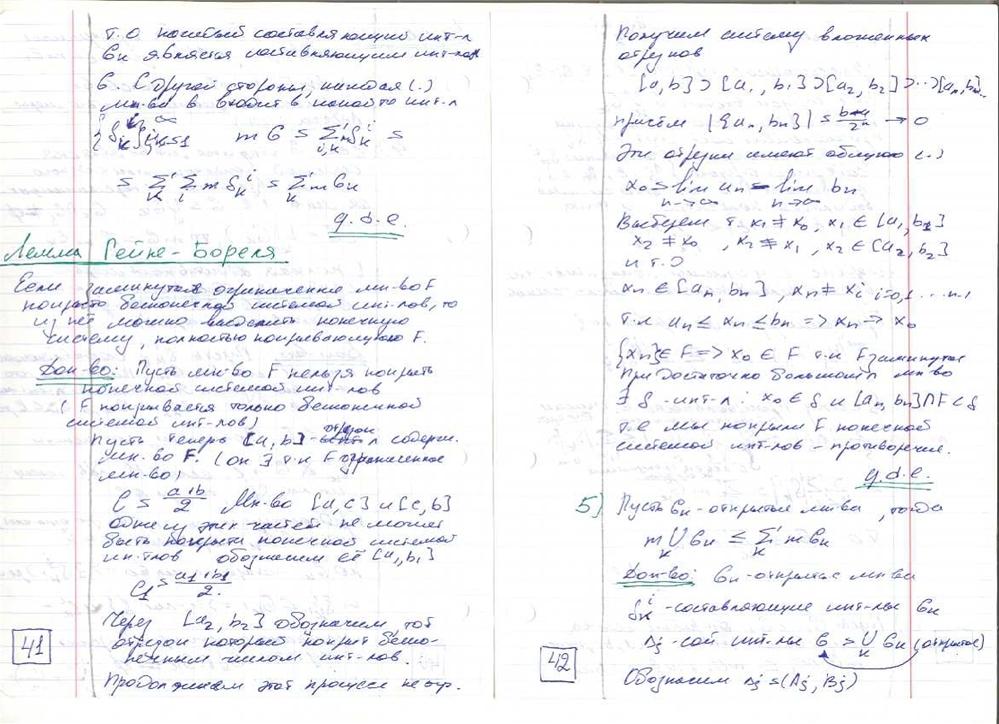 т.о каждый составляющий инт-л
Gк является составляющим инт-лом
G. С другой стороны, каждая (.)
мн-ва G входит в какой то инт-л
{δ_k^i}_{i,k=1}^∞ mG = Σ_{i,k} mδ_k^i =
= Σ_k Σ_i m δ_k^i = Σ_k m Gк
q.d.e.
Лемма Гейне-Бореля.
Если замкнутое ограниченное мн-во F
покрыто бесконечной системой инт-лов, то
из неё можно выделить конечную
систему, полностью покрывающую F.
Док-во: Пусть мн-во F нельзя покрыть
конечной системой инт-лов
(F покрывается только бесконечной
системой инт-лов)
Пусть теперь [a, b] - отрезок содерж.
мн-во F. (он ∃ т.к F ограниченное
мн-во)
C = (a+b)/2 Мн-во [a, c] и [c, b]
одна из этих частей не может
быть покрыта конечной системой
инт-лов обозначим её [a₁, b₁]
C₁ = (a₁+b₁)/2.
Через [a₂, b₂] обозначим тот
отрезок который покрыт беско-
нечным числом инт-лов.
Продолжаем этот процесс неогр.
41
Получим систему вложенных
отрезков
[a, b] ⊃ [a₁, b₁] ⊃ [a₂, b₂] ⊃ ... ⊃ [aₙ, bₙ]...
причём |[aₙ, bₙ]| = (b-a)/2ⁿ → 0
Эти отрезки имеют общую (.)
x₀ = lim_{n→∞} aₙ = lim_{n→∞} bₙ
Выберем т. x₁ ≠ x₀, x₁ ∈ [a₁, b₁]
x₂ ≠ x₀, x₂ ≠ x₁, x₂ ∈ [a₂, b₂]
и т.д
xₙ ∈ [aₙ, bₙ], xₙ ≠ xᵢ i=0,1...n-1
т.к aₙ ≤ xₙ ≤ bₙ => xₙ → x₀
{xₙ} ∈ F => x₀ ∈ F т.к F замкнутое
При достаточно большом n мн-во
∃ δ-инт-л : x₀ ∈ δ и [aₙ, bₙ]∩F ⊂ δ
т.е мы покрыли F конечной
системой инт-лов - противоречие.
q.d.e.
5) Пусть Gк - открытые мн-ва, тогда
m ⋃_k Gк ≤ Σ_k m Gк
Док-во: Gк - открытое мн-ва
δ_k^i - составляющие инт-лы Gк
Δj - сост инт-лы G = ⋃_k Gк (открытое)
Обозначим Δj = (Aj, Bj)
42